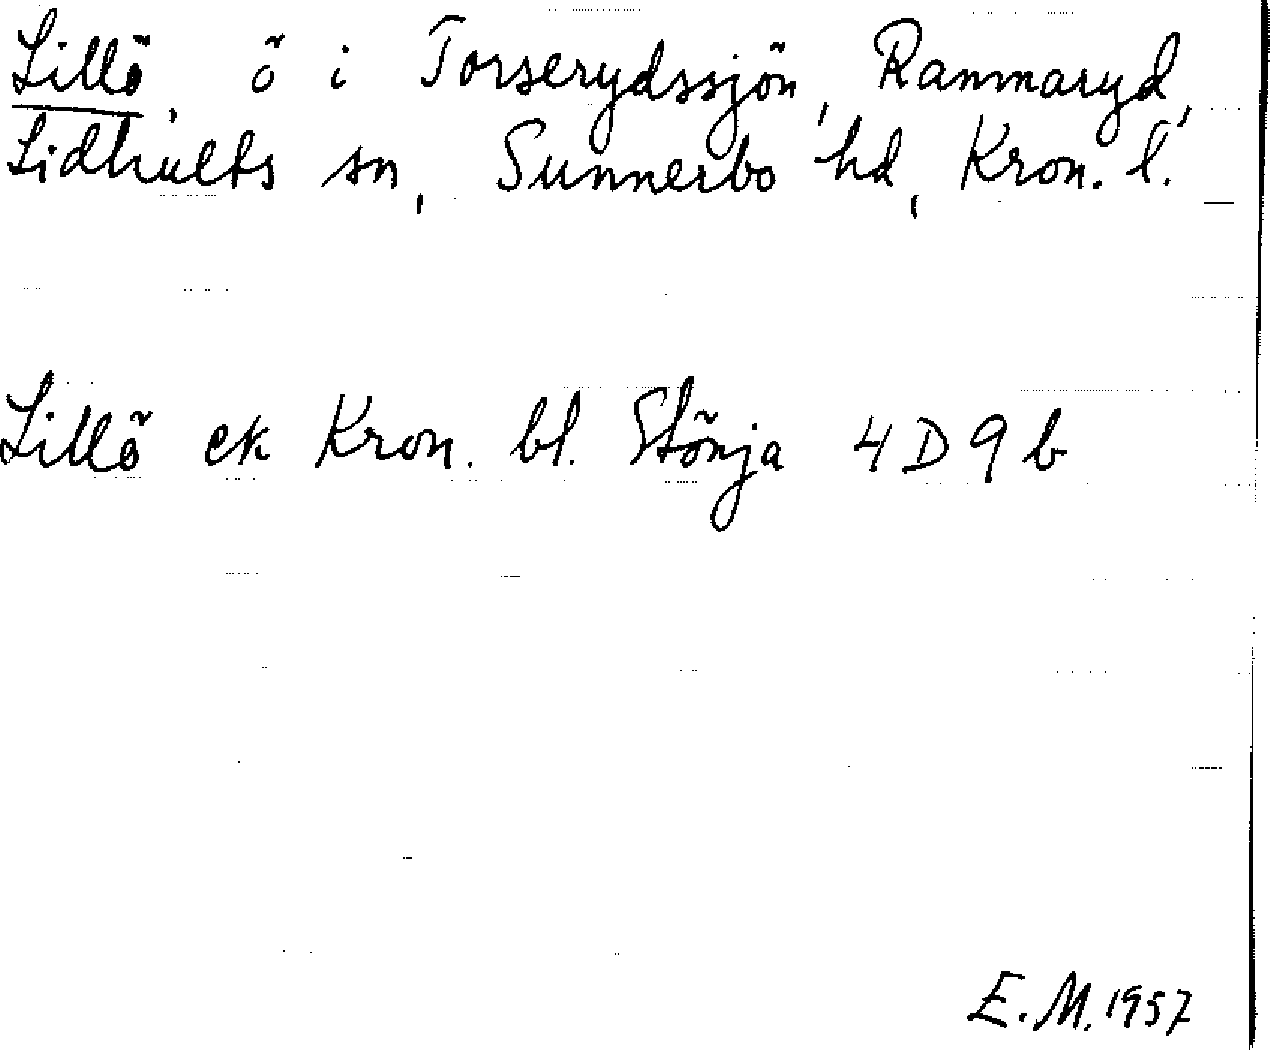 Lillö, ö i Torserydssjön, Rammaryd,
Lidhults sn, Sunnerbo hd, Kron. l.
Lillö ek Kron. bl. Stönja 4D9b
E.M. 1957